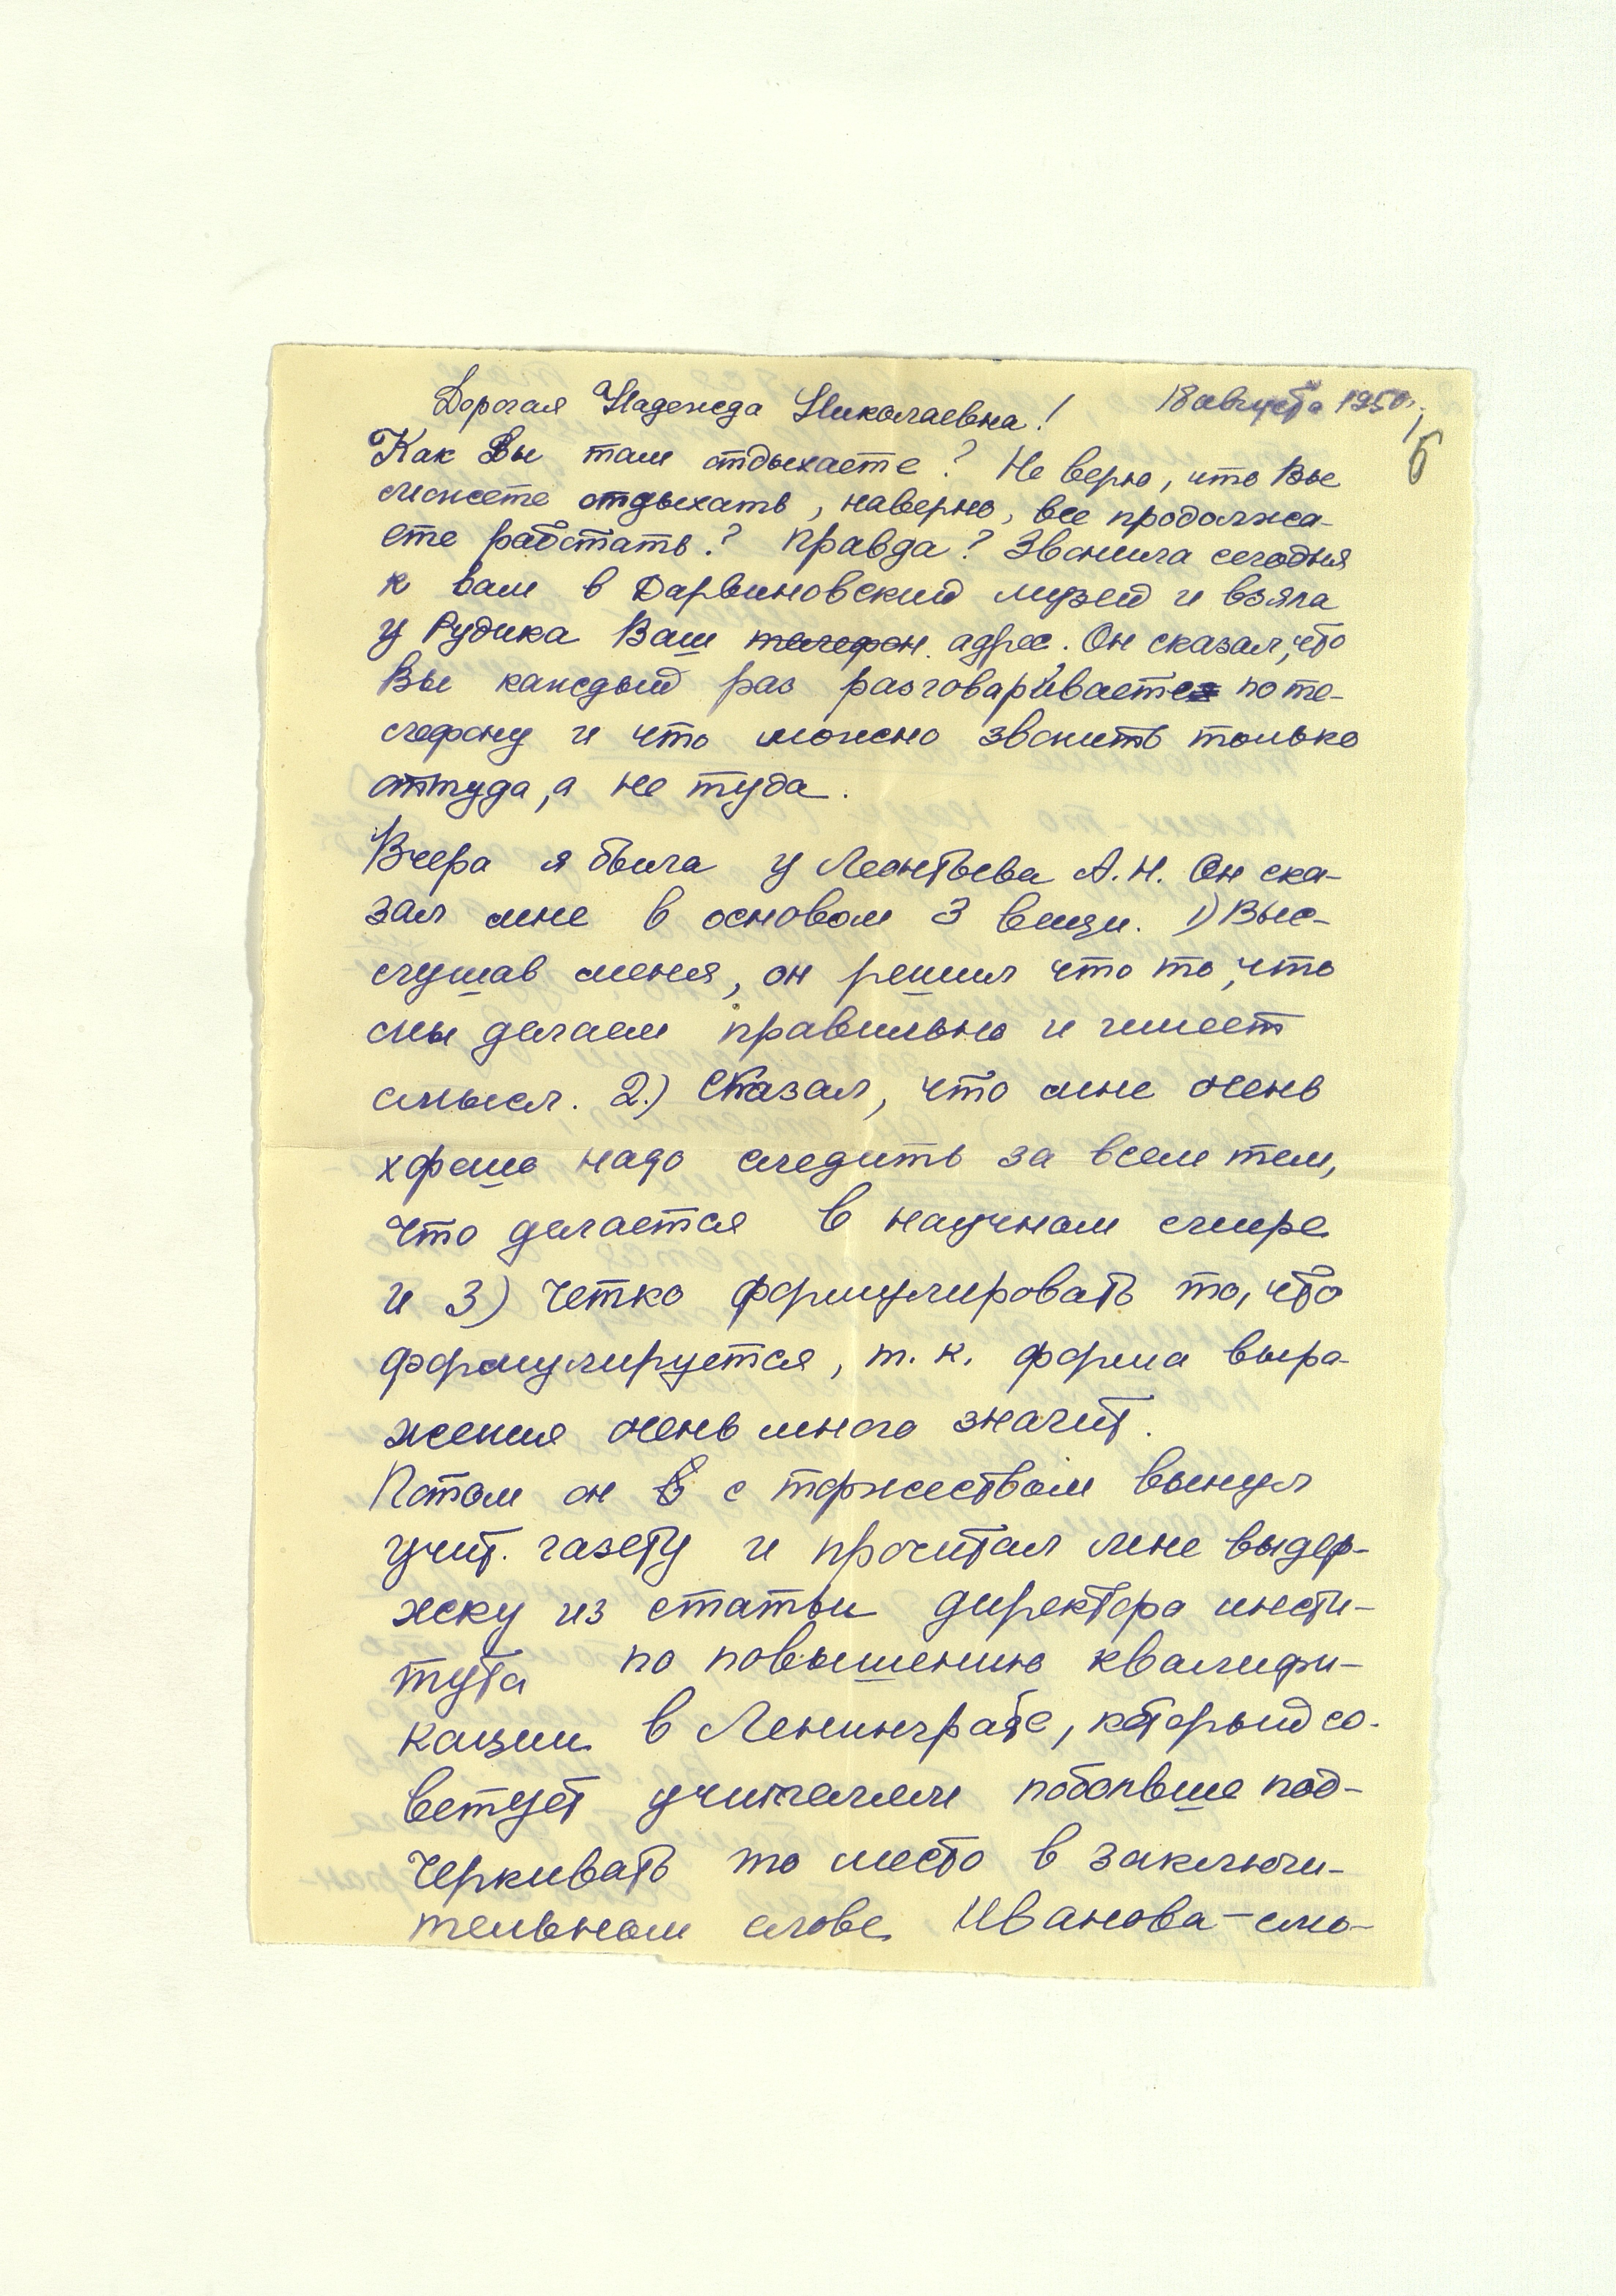 18 августа 1950г.
6
Дорогая Надежда Николаевна!
Как Вы там отдыхаете? Не верю, что Вы
можете отдыхать, наверно, все продолжа-
ете работать? Правда? Звонила сегодня
к вам в Дарвиновский музей и взяла
у Рудика Ваш телефон адрес. Он сказал, что
Вы каждый раз разговариваете по те-
лефону и что можно звонить только
оттуда, а не туда.
Вчера я была у Леонтьева А.Н. Он ска-
зал мне в основом 3 вещи. 1) Выс-
слушав меня, он решил что то, что
мы делаем правильно и имеет
смысл. 2.) Сказал, что мне очень
хорошо надо следить за всем тем,
что делается в научном мире
и 3) четко формулировать то, что
формулируется, т. к. форма выра-
жения очень много значит.
Потом он с торжеством вынул
учит. газету и прочитал мне выдер-
жку из статьи директора инсти-
тута по повышению квалифи-
кации в Ленинграде, который со-
ветует учителям побольше под-
черкивать то место в заключи-
тельном слове Иванова-смо-